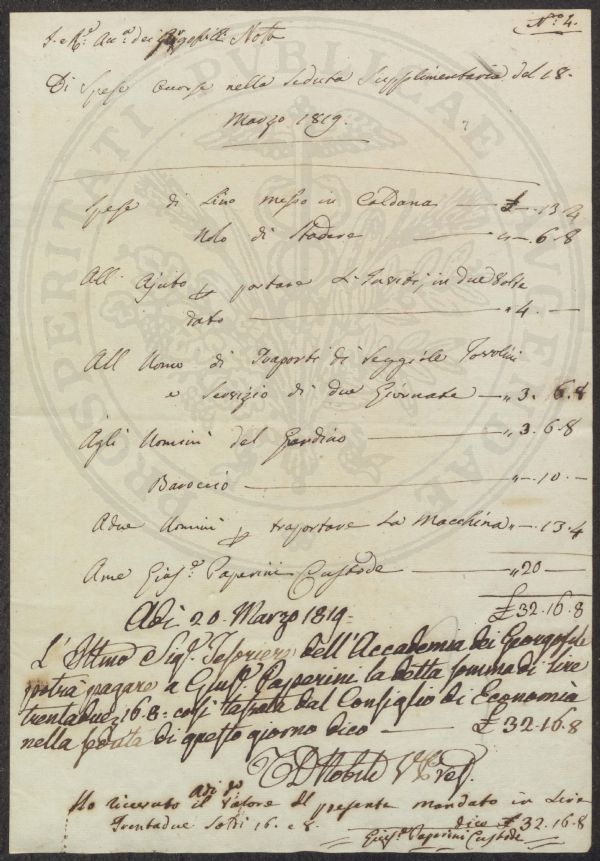 N.o 4.
I. e R.e Acc.a dei Georgofili Nota
Di Spese Occorse nella Seduta Supplimentaria del 18.
Marzo 1819.
Spese di Lino messo in Caldana — £ —. 13. 4
Nolo di Stadere — „ —. 6. 8
All' Ajuto p portare in due Volte
dato — „ 4. —
All Uomo di Trasporti di Seggiole Tavolini
e Servizio di due Giornate — „ 3. 6. 8
Agli Uomini del Giardino — „ 3. 6. 8
Baroccio — „ —. 10. —
A due Uomini p trasportare La Macchina „ —. 13. 4
A me Gius.e Paperini Custode — „ 20 —
£ 32. 16. 8
Adi 20. Marzo 1819.
L'Ill.mo Sig.r Tesoriere dell'Accademia dei Georgofili
potrà pagare a Gius.e Paperini la detta somma di lire
trentadue, 16. 8. così tassata dal Consiglio di Economia
nella seduta di questo giorno dico — £ 32. 16. 8
Nobili V. Pres.
Ho ricevuto adi do il Valore del presente mandato in Lire
Trentadue Soldi 16. e 8. dico £ 32. 16. 8
Gius.e Paperini Custode
PROSPERITATI PUBLICAE AUGENDAE